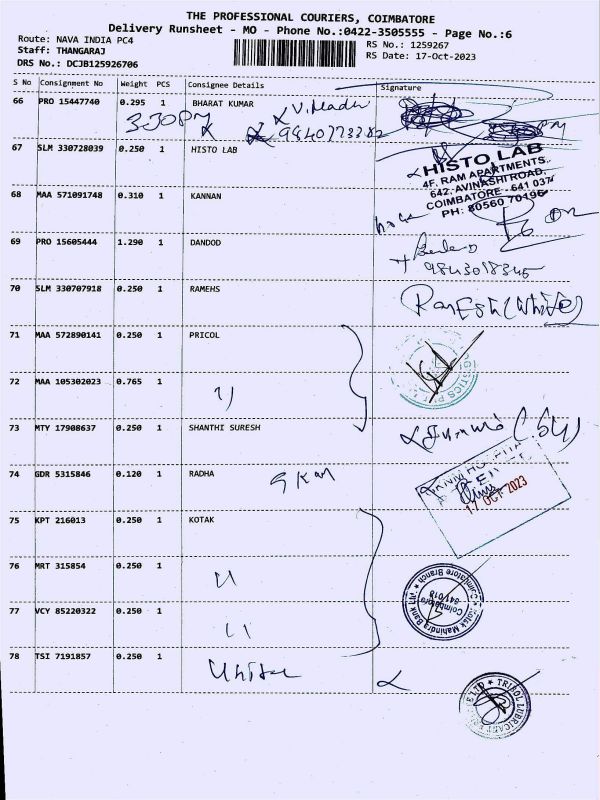 THE PROFESSIONAL COURIERS, COIMBATORE
Delivery Runsheet - MO - Phone No.:0422-3505555 - Page No.:6
Route: NAVA INDIA PC4
RS No.: 1259267
Staff: THANGARAJ
RS Date: 17-Oct-2023
DRS No.: DCJB125926706
S No Consignment No Weight PCS Consignee Details Signature
66 PRO 15447740 0.295 1 BHARAT KUMAR
67 SLM 330728039 0.250 1 HISTO LAB
HISTO LAB
4F, RAM APARTMENTS,
642, AVINASHI ROAD,
COIMBATORE - 641 037
PH: 80560 70196
68 MAA 571091748 0.310 1 KANNAN
69 PRO 15605444 1.290 1 DANDOD
9843018345
70 SLM 330707918 0.250 1 RAMEHS
71 MAA 572890141 0.250 1 PRICOL
72 MAA 105302023 0.765 1
73 MTY 17908637 0.250 1 SHANTHI SURESH
74 GDR 5315846 0.120 1 RADHA
17 OCT 2023
75 KPT 216013 0.250 1 KOTAK
76 MRT 315854 0.250 1
Kotak Mahindra Bank Ltd
Coimbatore Branch
Coimbatore
641 018
77 VCY 85220322 0.250 1
78 TSI 7191857 0.250 1